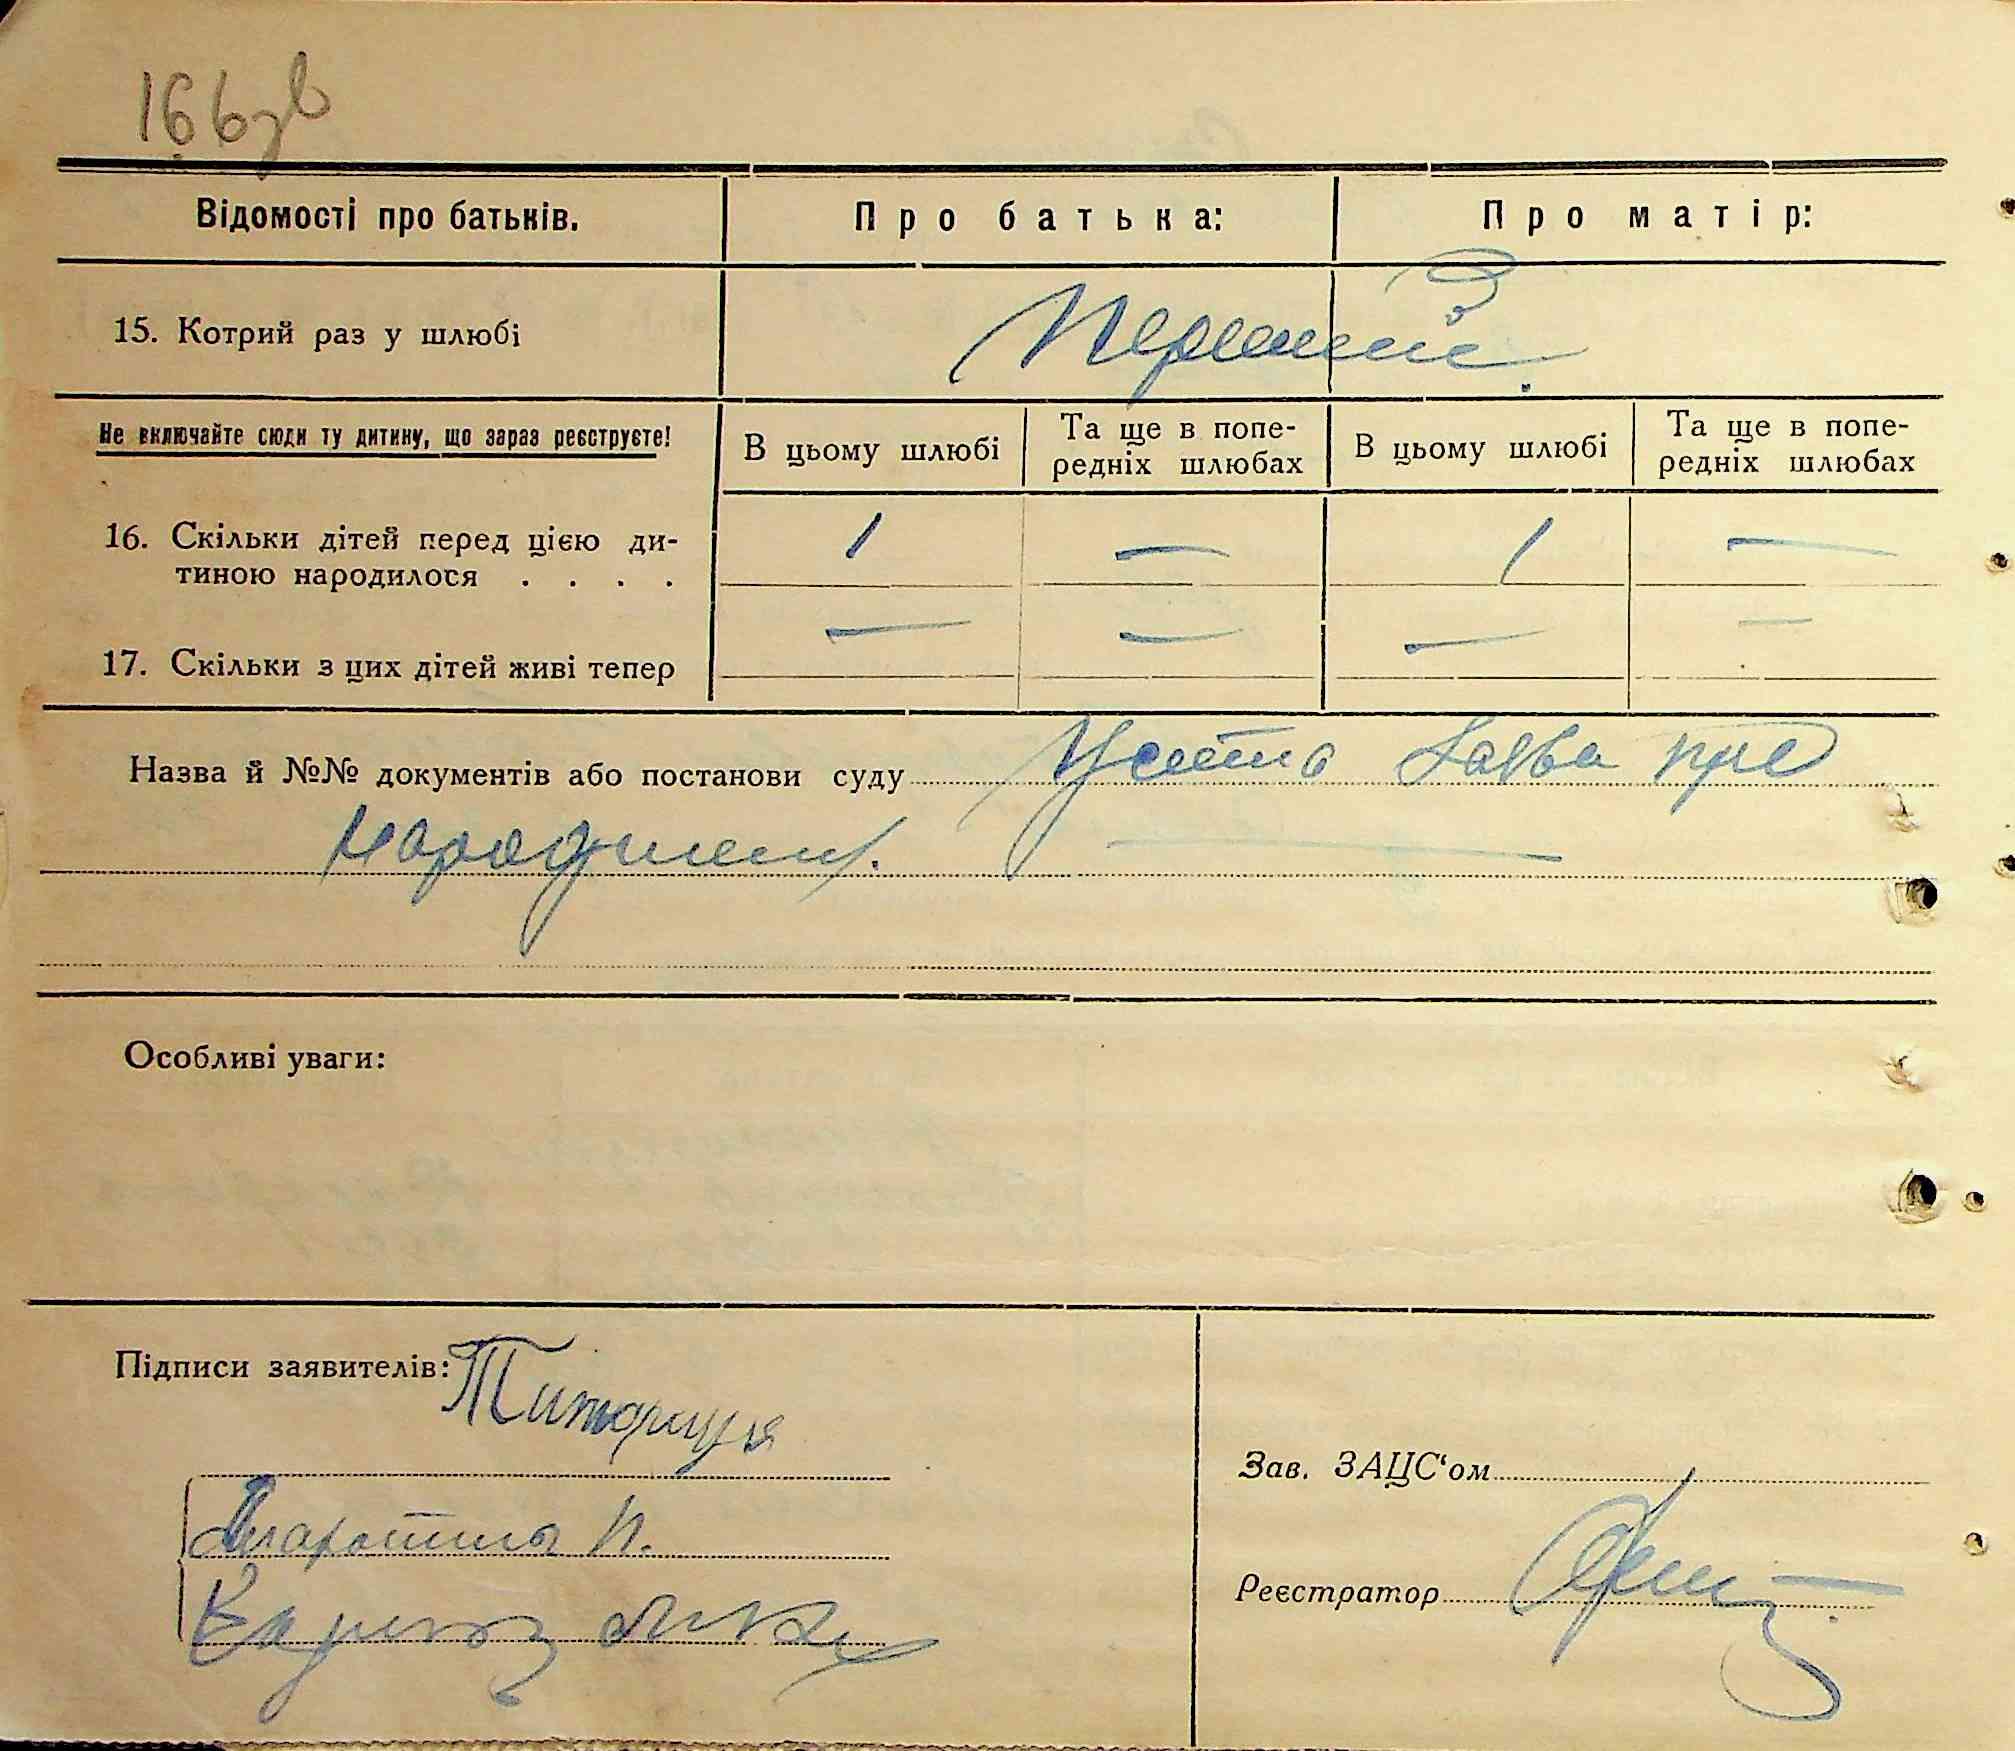 166 зв
Відомості про батьків. Про батька: Про матір:
15. Котрий раз у шлюбі Перший.
Не включайте сюди ту дитину, що зараз реєструєте!
В цьому шлюбі Та ще в попе-
редніх шлюбах В цьому шлюбі Та ще в попе-
редніх шлюбах
16. Скільки дітей перед цією ди-
тиною народилося . . . . 1 — 1 —
17. Скільки з цих дітей живі тепер — — — —
Назва й №№ документів або постанови суду Усна заява про
народжен.
Особливі уваги:
Підписи заявителів:
Зав. ЗАЦС‘ом
Реєстратор